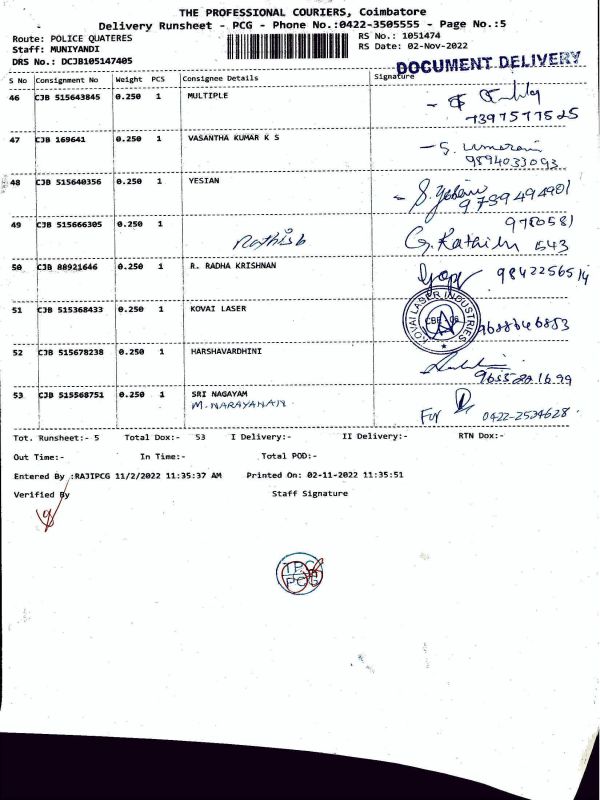 THE PROFESSIONAL COURIERS, Coimbatore
Delivery Runsheet - PCG - Phone No.:0422-3505555 - Page No.:5
Route: POLICE QUATERES RS No.: 1051474
Staff: MUNIYANDI RS Date: 02-Nov-2022
DRS No.: DCJB105147405
DOCUMENT DELIVERY
S No Consignment No Weight PCS Consignee Details Signature
46 CJB 515643845 0.250 1 MULTIPLE
7397577525
47 CJB 169641 0.250 1 VASANTHA KUMAR K S
9894033093
48 CJB 515640356 0.250 1 YESIAN
9739494901
49 CJB 515666305 0.250 1 9780581
Rathish 543
50 CJB 88921646 0.250 1 R. RADHA KRISHNAN 9842256514
51 CJB 515368433 0.250 1 KOVAI LASER
KOVAI LASER INDUSTRIES
52 CJB 515678238 0.250 1 HARSHAVARDHINI
53 CJB 515568751 0.250 1 SRI NAGAYAM
M. NARAYANAN For 0422-2534628
Tot. Runsheet:- 5 Total Dox:- 53 I Delivery:- II Delivery:- RTN Dox:-
Out Time:- In Time:- Total POD:-
Entered By :RAJIPCG 11/2/2022 11:35:37 AM Printed On: 02-11-2022 11:35:51
Verified By Staff Signature
TPC
PCG